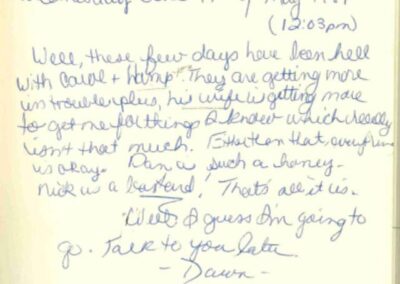 (12:03pm)
Well, these few days have been hell
with Carol + hump. They are getting more
in trouble plus, his wife is getting more
to get me for things I know which really
isn't that much. that, everything
is okay. Dan is such a honey.
Nick is a bastard! That's all it is.
Well I guess I'm going to
go. Talk to you later.
- Dawn -